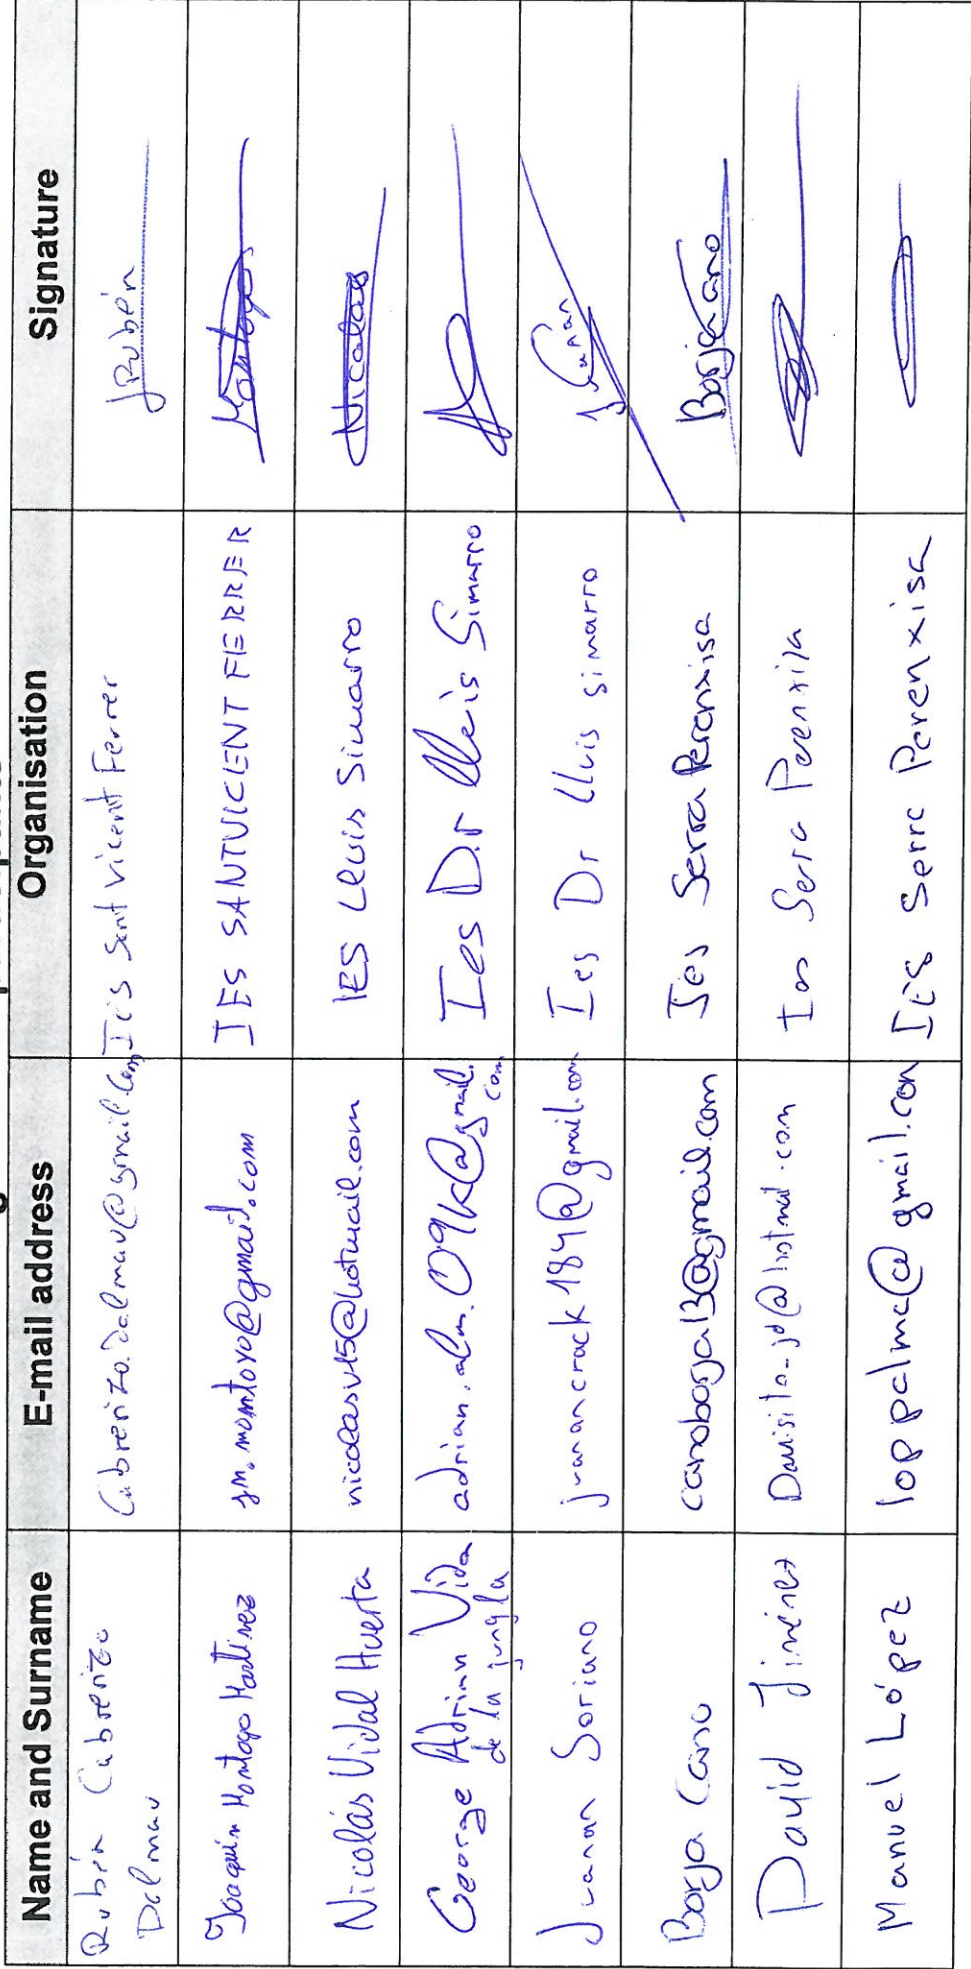 Name and Surname E-mail address Organisation Signature
Rubén Cabrerizo Dalmau cabrerizo.dalmau@gmail.com Ies Sant Vicent Ferrer Rubén
Joaquín Montoyo Martínez jm.montoyo@gmail.com IES SANT VICENT FERRER Montoyo
Nicolás Vidal Huerta nicolasv15@hotmail.com IES Lluis Simarro Nicolas
George Adrian Vida de la jungla adrian.alm.09k@gmail.com Ies D.r Lluis Simarro
Juanan Soriano juanancrack184@gmail.com Ies Dr Lluis simarro Juanan
Borja Cano canoborja13@gmail.com Ies Serra Perenxisa Borja Cano
David Jiménez Davisito-jd@hotmail.com Ies Serra Perenxisa
Manuel López loppalma@gmail.com Ies Serra Perenxisa